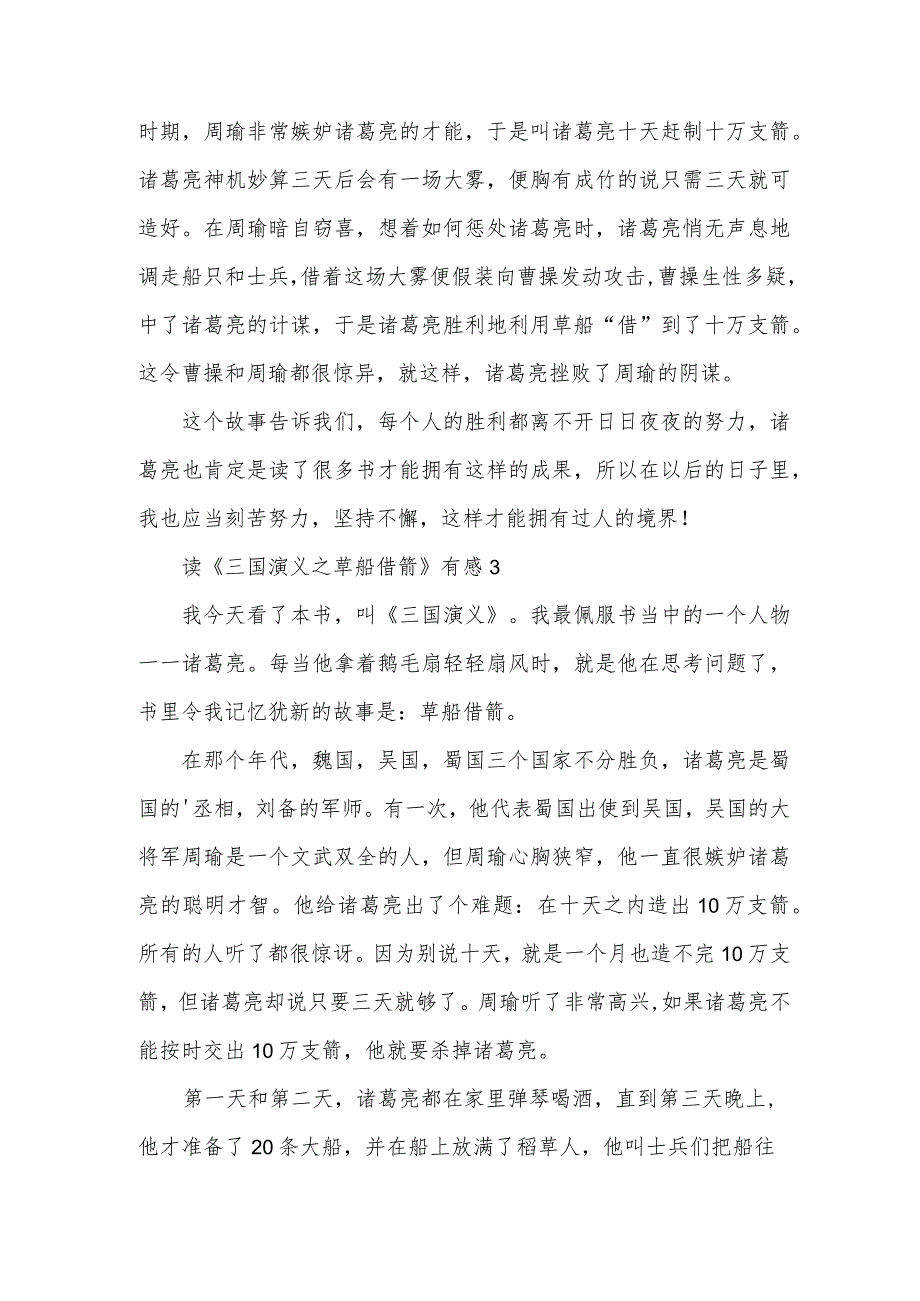 时期，周瑜非常嫉妒诸葛亮的才能，于是叫诸葛亮十天赶制十万支箭。
诸葛亮神机妙算三天后会有一场大雾，便胸有成竹的说只需三天就可
造好。在周瑜暗自窃喜，想着如何惩处诸葛亮时，诸葛亮悄无声息地
调走船只和士兵，借着这场大雾便假装向曹操发动攻击，曹操生性多疑，
中了诸葛亮的计谋，于是诸葛亮胜利地利用草船“借”到了十万支箭。
这令曹操和周瑜都很惊异，就这样，诸葛亮挫败了周瑜的阴谋。
这个故事告诉我们，每个人的胜利都离不开日日夜夜的努力，诸
葛亮也肯定是读了很多书才能拥有这样的成果，所以在以后的日子里，
我也应当刻苦努力，坚持不懈，这样才能拥有过人的境界！
读《三国演义之草船借箭》有感3
我今天看了本书，叫《三国演义》。我最佩服书当中的一个人物
一一诸葛亮。每当他拿着鹅毛扇轻轻扇风时，就是他在思考问题了，
书里令我记忆犹新的故事是：草船借箭。
在那个年代，魏国，吴国，蜀国三个国家不分胜负，诸葛亮是蜀
国的'丞相，刘备的军师。有一次，他代表蜀国出使到吴国，吴国的大
将军周瑜是一个文武双全的人，但周瑜心胸狭窄，他一直很嫉妒诸葛
亮的聪明才智。他给诸葛亮出了个难题：在十天之内造出10万支箭。
所有的人听了都很惊讶。因为别说十天，就是一个月也造不完10万支
箭，但诸葛亮却说只要三天就够了。周瑜听了非常高兴，如果诸葛亮不
能按时交出10万支箭，他就要杀掉诸葛亮。
第一天和第二天，诸葛亮都在家里弹琴喝酒，直到第三天晚上，
他才准备了20条大船，并在船上放满了稻草人，他叫士兵们把船往